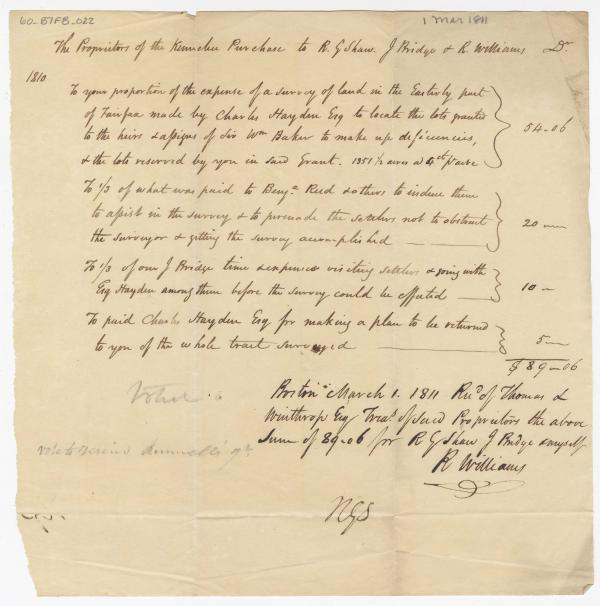 60-B7FB-022
1 Mar 1811
The Proprietors of the Kennebec Purchase to R. G Shaw. J Bridge & R. Williams Dr
1810
To your proportion of the expense of a survey of land in the Easterly part
of Fairfax made by Charles Hayden Esq to locate the lots granted
to the heirs & assigns of Sir Wm Baker to make up deficiencies,
& the lots reserved by you in said Grant. 1351 1/2 acres a 4 cts acre 54-06
To 1/3 of what was paid to Benja Reed & others to induce them
to assist in the survey & to persuade the settlers not to obstruct
the surveyor & getting the survey accomplished 20
To 1/3 of our J Bridge time & expences visiting settlers & going with
Esq Hayden among them before the survey could be effected 10
To paid Charles Hayden Esq for making a plan to be returned
to you of the whole tract surveyed 5
$ 89-06
Boston March 1. 1811 Recd of Thomas L
Winthrop Esq Treas of said Proprietors the above
Sum of 89-06 for R G Shaw J Bridge & myself
R Williams
RGS